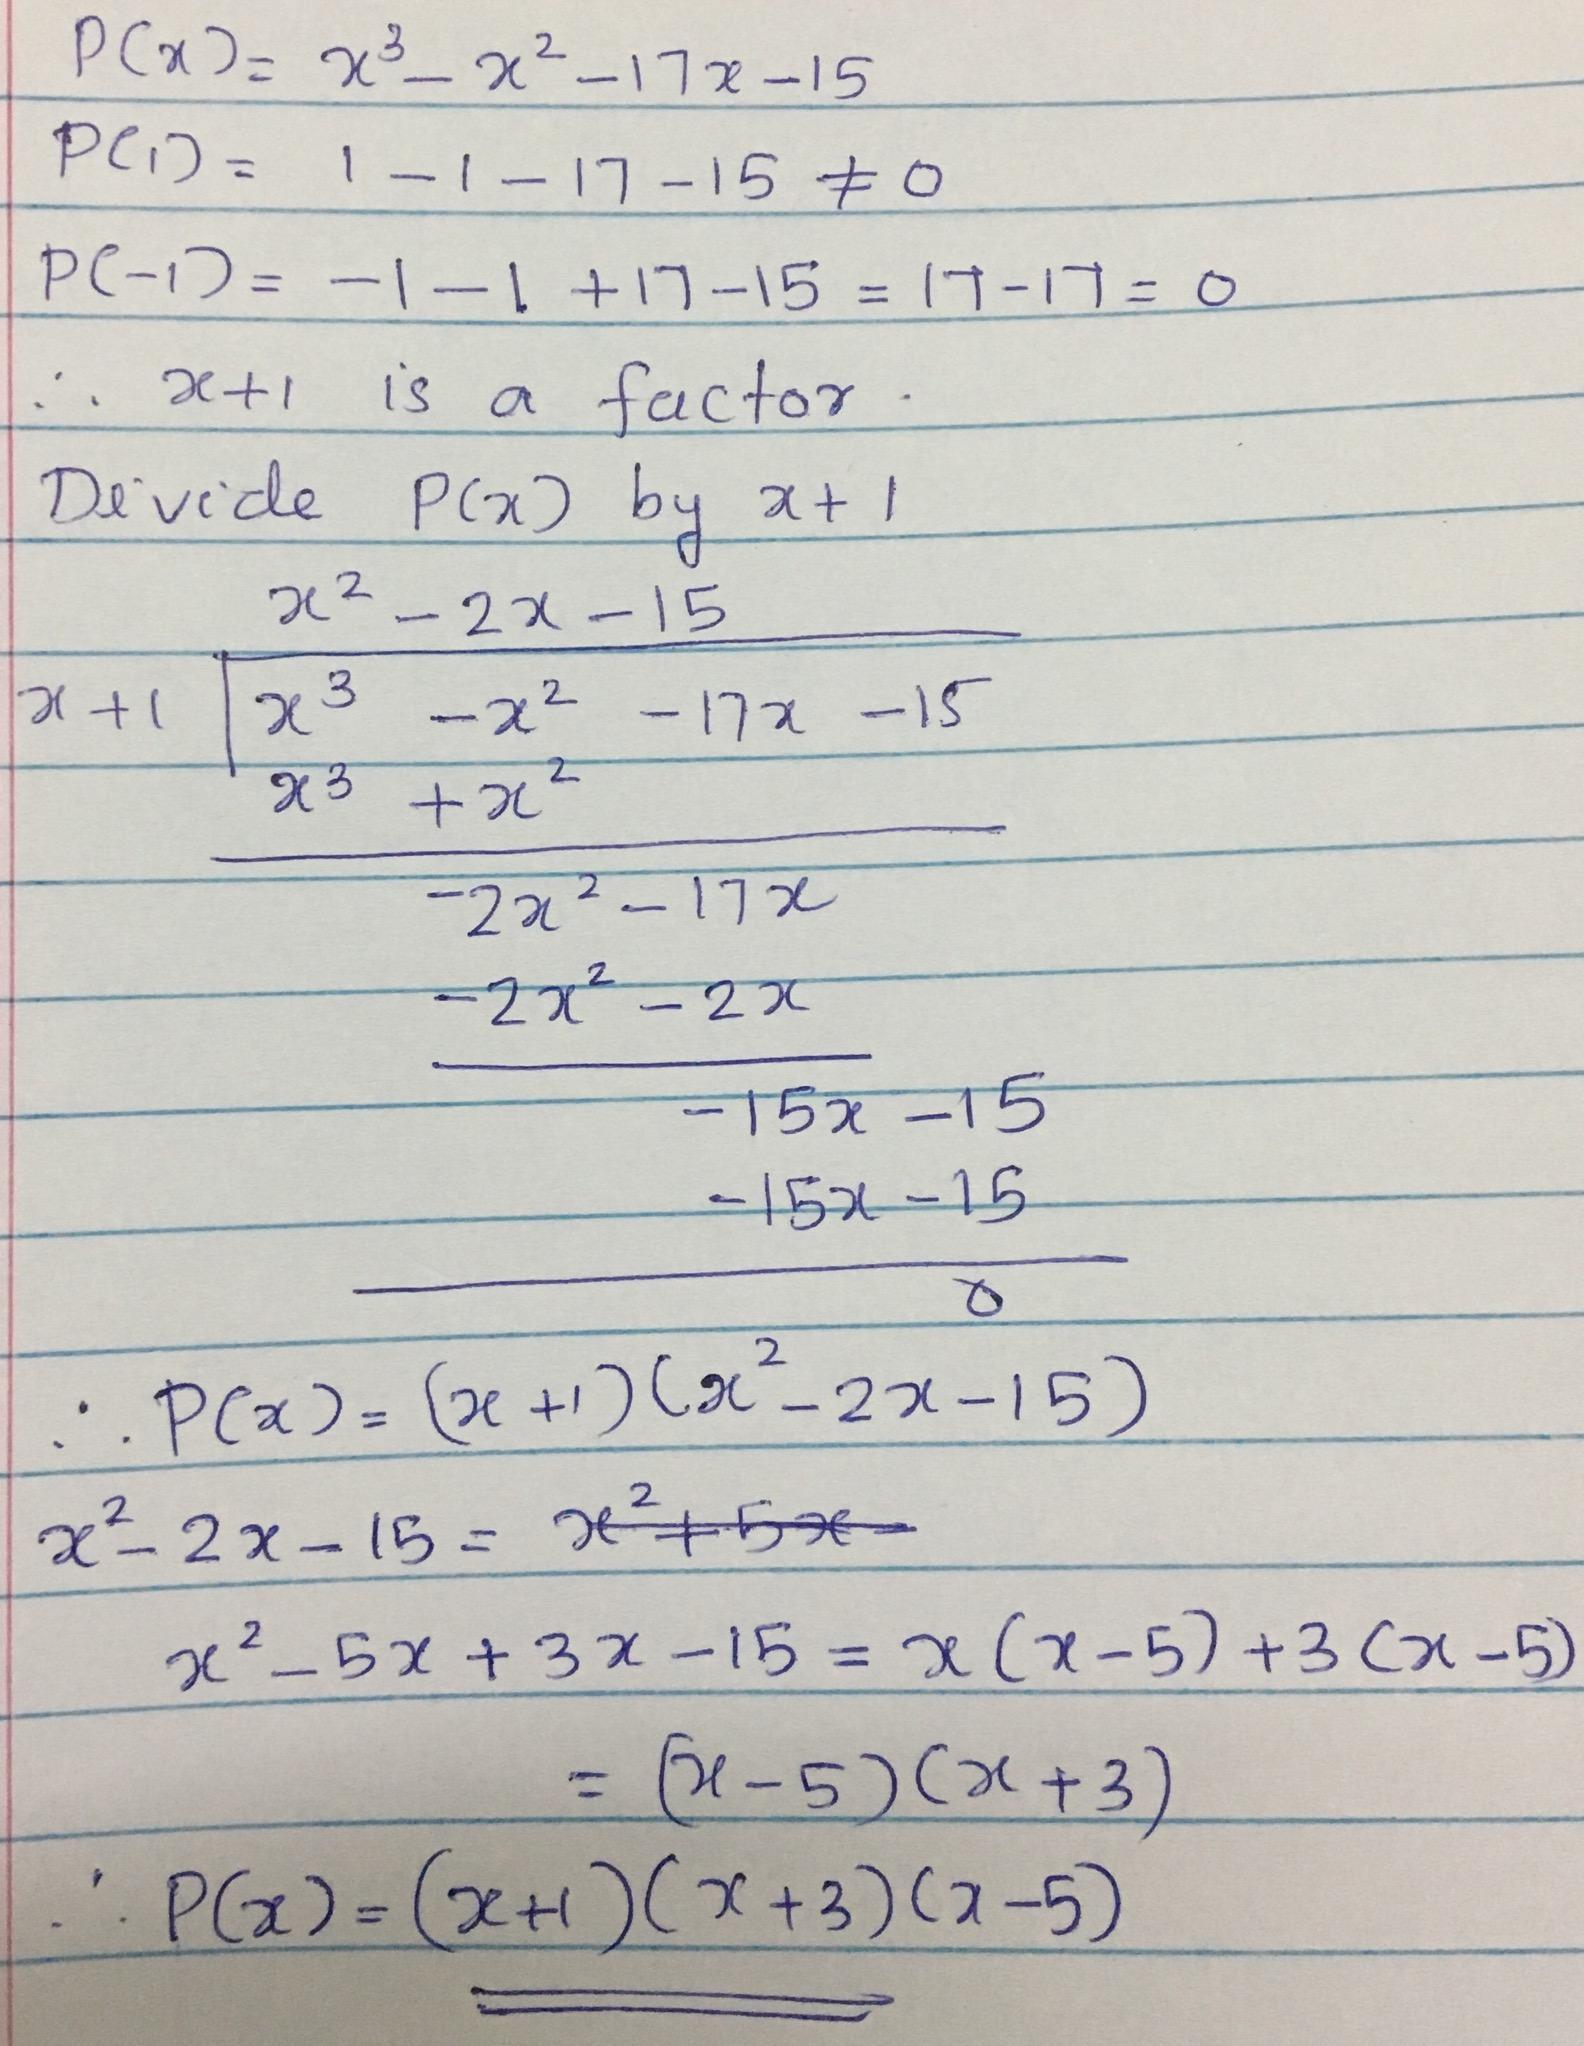 P(x) = x³ - x² - 17x - 15
P(1) = 1 - 1 - 17 - 15 ≠ 0
P(-1) = -1 - 1 + 17 - 15 = 17 - 17 = 0
∴ x+1 is a factor.
Divide P(x) by x+1
x² - 2x - 15
x+1 | x³ - x² - 17x - 15
x³ + x²
-2x² - 17x
-2x² - 2x
-15x - 15
-15x - 15
0
∴ P(x) = (x+1)(x² - 2x - 15)
x² - 2x - 15 = x² + 5x
x² - 5x + 3x - 15 = x(x-5) + 3(x-5)
= (x-5)(x+3)
∴ P(x) = (x+1)(x+3)(x-5)